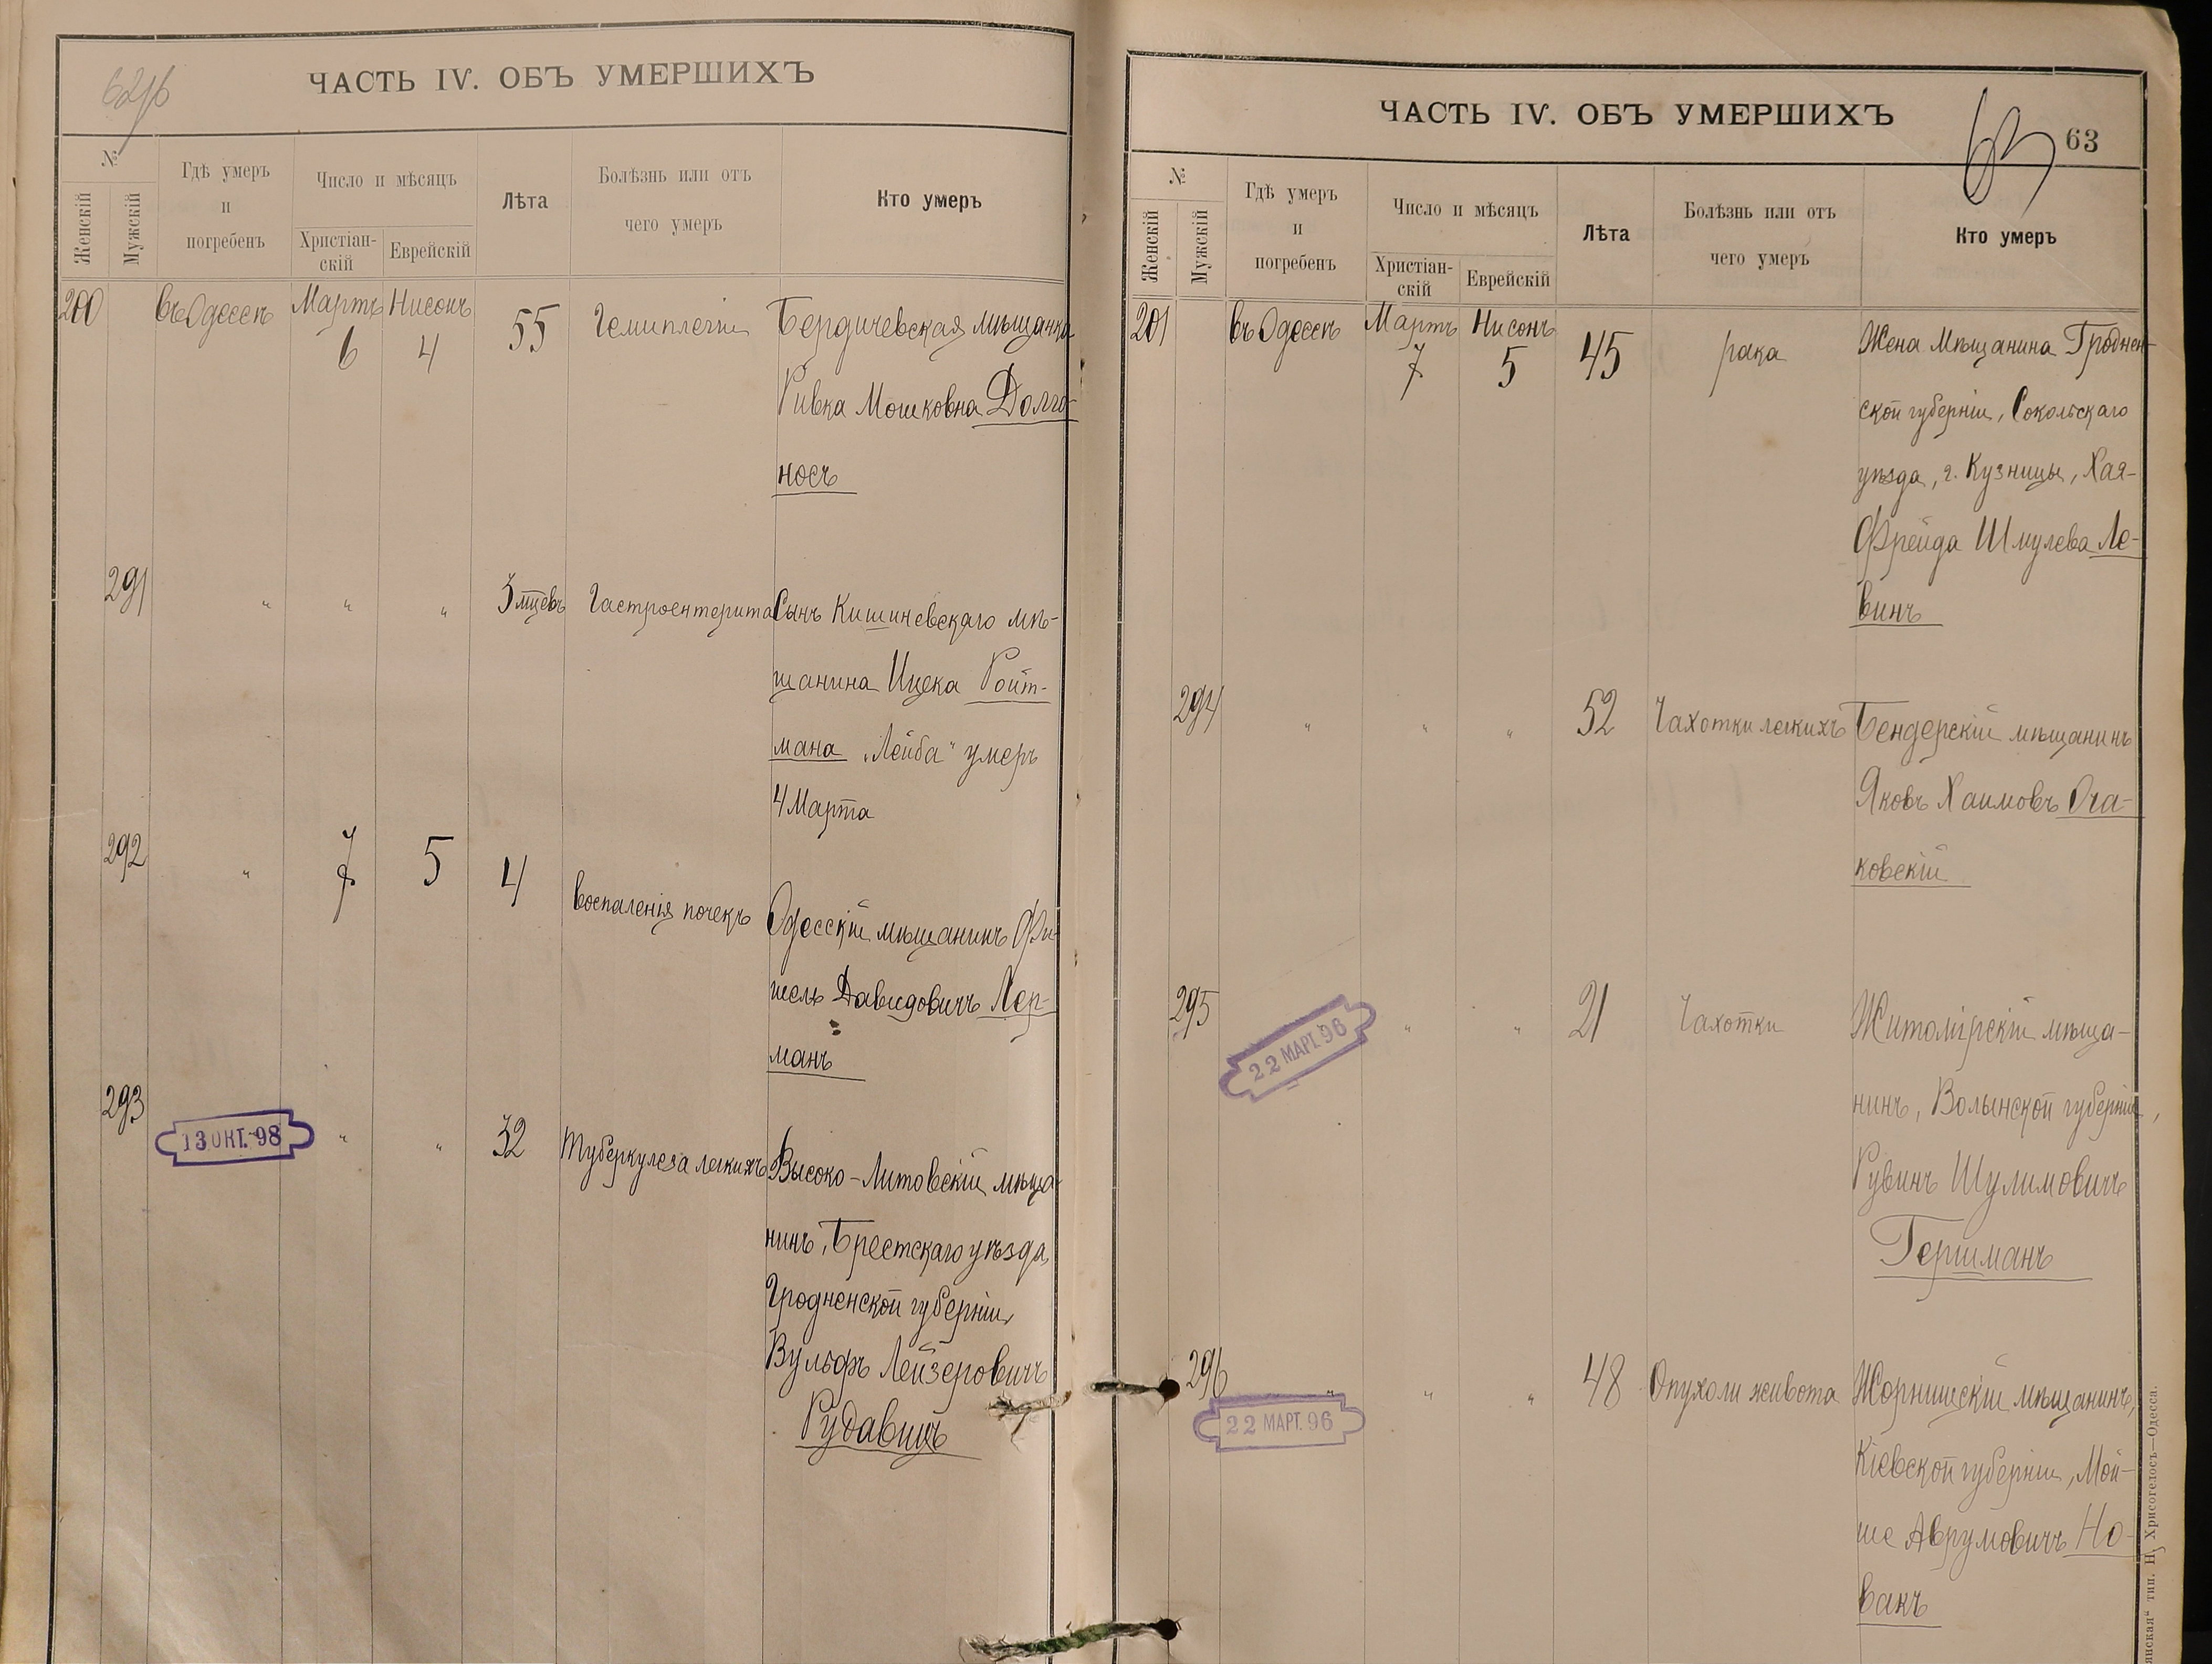 62 об
ЧАСТЬ IV. ОБЪ УМЕРШИХЪ
№
Женскій
Мужскій
Гдѣ умеръ
и
погребенъ
Число и мѣсяцъ
Христіан-
скій
Еврейскій
Лѣта
Болѣзнь или отъ
чего умеръ
Кто умеръ
200 въ Одессѣ Мартъ 6 Нисонъ 4 55 Гемиплегіи Бердичевская мѣщанка
Ривка Мошковна Долго-
носъ
291 " " " 3 мцевъ Гастроентерита Сынъ Кишиневскаго мѣ-
щанина Ицека Ройт-
мана „Лейба" умеръ
4 Марта
292 " 7 5 4 воспаленія почекъ Одесскій мѣщанинъ Фи-
шель Давидовичъ Лер-
манъ
293 13 ОКТ. 98 " " 32 Туберкулеза легкихъ Высоко-Литовскій мѣща-
нинъ, Брестскаго уѣзда,
Гродненской губерніи,
Вульфъ Лейзеровичъ
Рудавицъ
ЧАСТЬ IV. ОБЪ УМЕРШИХЪ
63
63
№
Женскій
Мужскій
Гдѣ умеръ
и
погребенъ
Число и мѣсяцъ
Христіан-
скій
Еврейскій
Лѣта
Болѣзнь или отъ
чего умеръ
Кто умеръ
201 въ Одессѣ Мартъ 7 Нисонъ 5 45 рака Жена Мѣщанина Гроднен-
ской губерніи, Сокольскаго
уѣзда, г. Кузницы, Хая-
Фрейда Шмулева Ле-
винъ
294 " " " 52 Чахотки легкихъ Бендерскій мѣщанинъ
Яковъ Хаимовъ Оча-
ковскій
295 22 МАРТ. 96 " " 21 Чахотки Житомірскій мѣща-
нинъ, Волынской губерніи,
Рувинъ Шулимовичъ
Гершманъ
296 " " " 48 Опухоли живота Жорнищскій мѣщанинъ,
22 МАРТ. 96
Кіевской губерніи, Мой-
ше Аврумовичъ Но-
вакъ
янская" тип. Н. Хрисогелосъ—Одесса.